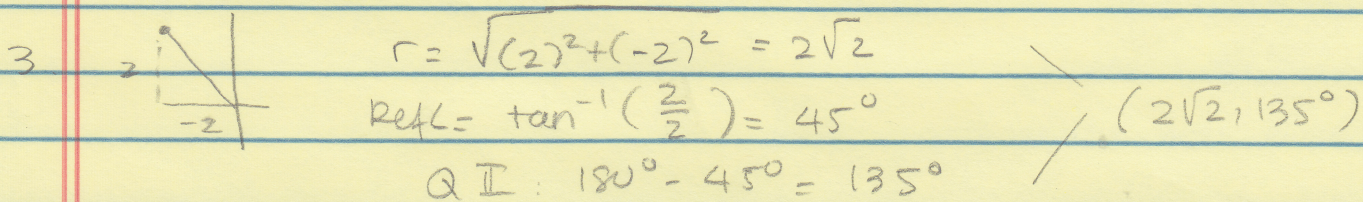 3
2
-2
r = √((2)²+(-2)²) = 2√2
Ref∠ = tan⁻¹ (2/2) = 45°
Q II : 180° - 45° = 135°
(2√2, 135°)